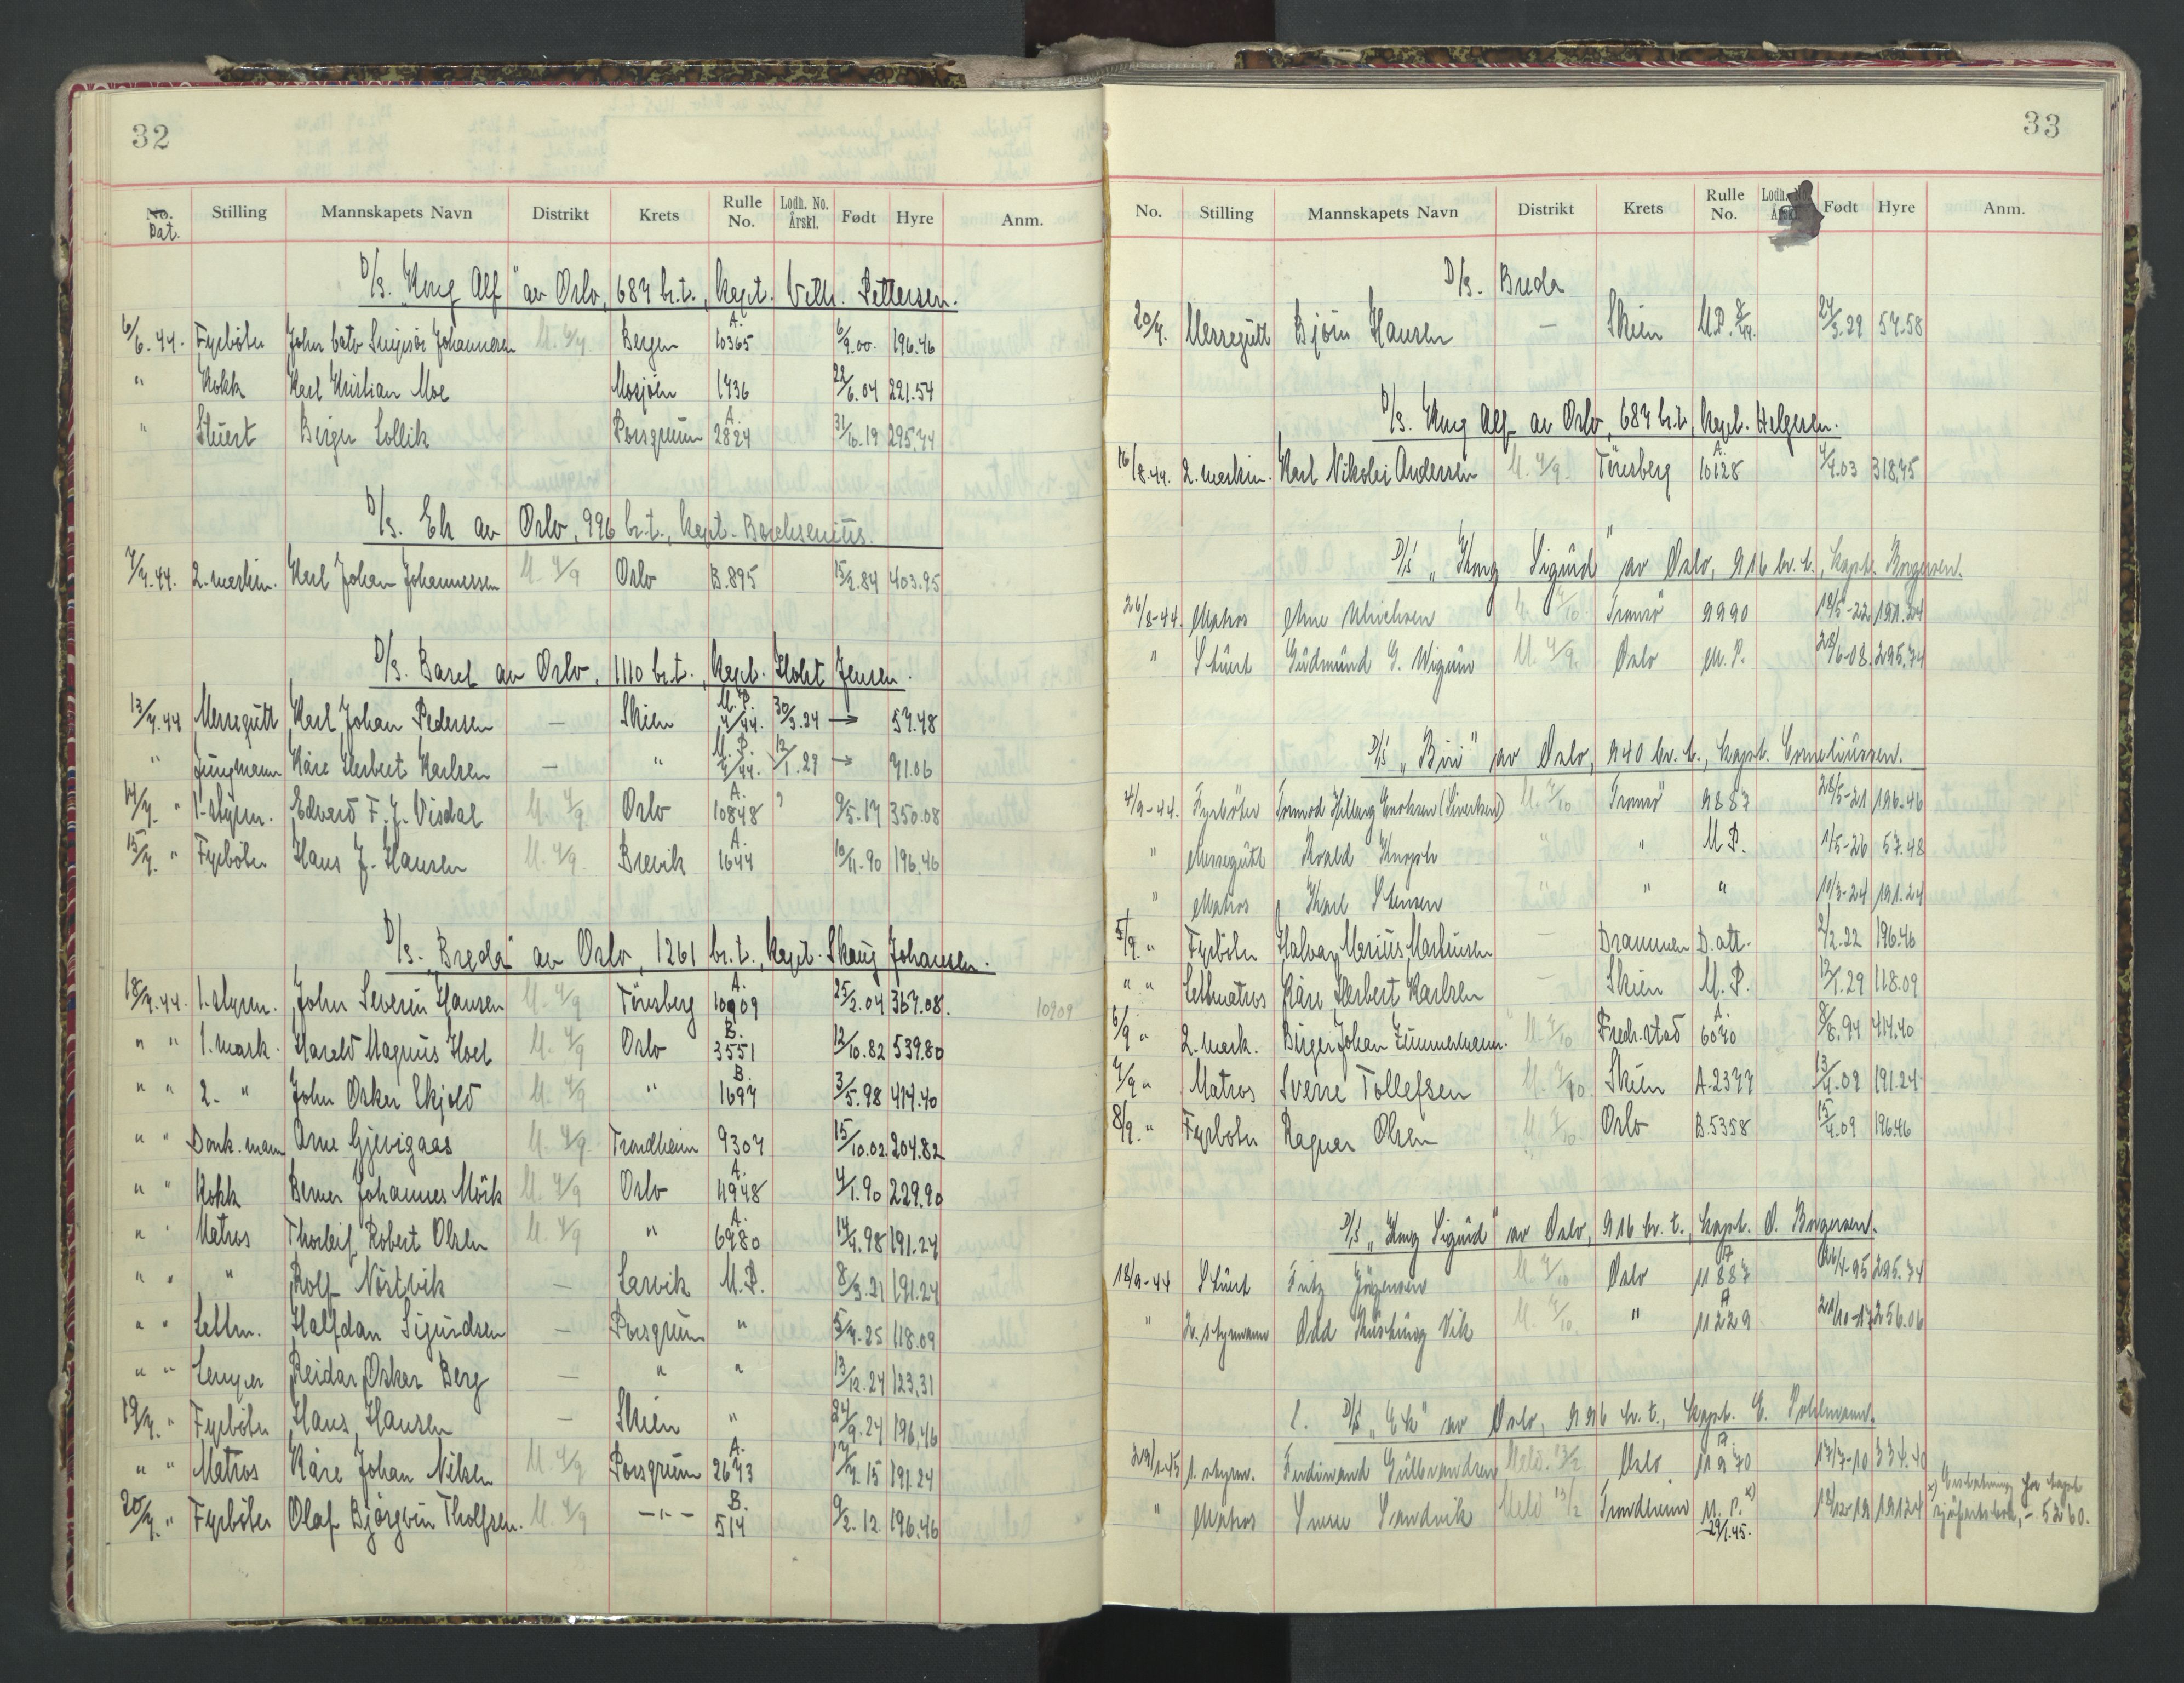 32
No. Stilling Mannskapets Navn Distrikt Krets Rulle No. Lodh. No. Årskl. Født Hyre Anm.
Dat.
D/S. "Kong Alf" av Oslo, 687 br.t., Kapt. Vilh. Pettersen.
6/6.44. Fyrböter John Johannesen M. 4/9 Bergen A. 10365 6/9.00. 196.46
" Kokk Karl Kristian Moe Mosjöen 1736 22/6.04 221.54
" Stuert Birger Sollik Porsgrunn A. 2824 31/10.19 295,74
D/S. Ek av Oslo, 996 br.t., Kapt. Borchsenius.
7/7.44. 2. maskin. Karl Johan Johannessen M. 4/9 Oslo B.895 15/2.84 403.95
D/S. Basel av Oslo, 1110 br.t., Kapt. Holst Jensen.
13/7.44 Messegutt Karl Johan Pedersen — Skien M.P. 7/44. 30/3.24 → 57.48
" Jungmann Kåre Herbert Karlsen — " M.P. 7/44. 12/1.29 → 71.06
14/7. " 1. styrm. Edvard F. J. Visdal M. 4/9 Oslo A. 10848 9/5.17 350.08
15/7. " Fyrböter Hans J. Hansen M. 4/9 Brevik A. 1644 10/11.90 196,46
D/S. "Breda" av Oslo, 1261 br.t., Kapt. Skaug Johansen.
18/7.44. 1. styrm. John Severin Hansen M. 4/9 Tönsberg A. 10909 25/2.04 367.08. 10909
" " 1. mask. Harald Magnus Hoel M. 4/9 Oslo B. 3551 12/10.82 539.80
" " 2. " John Oskar Skjold M. 4/9 " B. 1697 3/5.98 474.40
" " Donk. mann Arne Gjevigaas M. 4/9 Trondheim 9307 15/10.02. 204.82
" " Kokk Berner Johannes Mörk M. 4/9 Oslo A. 11948 4/1.90 229.90
" " Matros Thorleif Robert Olsen M. 4/9 " A. 6980 14/9.98 191.24
" " " Rolf Nöstvik — Larvik M.P. 8/3.21 191.24
" " Lettm. Halfdan Sigurdsen — Porsgrunn " 5/7.25 118.09
" " Lemper Reidar Oskar Berg — " " 13/12.24 123,31
19/7. " Fyrböter Hans Hansen — Skien " 24/9.24 196,46
" " Matros Kåre Johan Nilsen M. 4/9 Porsgrunn A. 2673 17/7.15 191.24
20/7. " Fyrböter Olaf Björgvin Tholfsen. M. 4/9 —"— B. 514 9/2.12 196.46
33
No. Stilling Mannskapets Navn Distrikt Krets Rulle No. Lodh. No. Årskl. Født Hyre Anm.
D/S. Breda
20/7. Messegutt Björn Hansen — Skien M.P. 8/44. 24/3.29 57.58
D/S. Kong Alf av Oslo, 687 br.t, Kapt. Helgesen.
16/8.44. 2. maskin. Karl Nikolai Andersen M. 4/9. Tönsberg A. 10128 4/9.03 318,75
D/S "Kong Sigurd" av Oslo, 916 br.t., Kapt. Borgersen.
26/8-44. Matros Arne Ulrichsen M. 4/10 Tromsö 9990 19/5-22 191.24
" Stuert Gudmund G. Wigum M. 4/9. Oslo M.P. 28/6-08. 295,74
D/S "Biri" av Oslo, 940 br.t., Kapt. Corneliussen.
4/9-44. Fyrböter Tormod Hilberg Enoksen (Sivertsen) M. 4/10 Tromsö 9887 28/5-21 196.46
" Messegutt " " M.P. 1/5-26 57.48
" Matros Karl Stensen " " " 11/3-24 191.24
5/9. " Fyrböter Halvar Marius Martinsen — Drammen D.att. 2/2.22 196.46
" " Lettmatros Kåre Herbert Karlsen — Skien M.P. 12/1.29 118.09
6/9 " 2. mask. Birger Johan Zimmermann. M. 4/10 Fredr.stad A. 6070 8/8.94 414.40
7/9 " Matros Sverre Tollefsen M. 4/10 Skien A.2377 13/4.09 191.24
8/9. " Fyrböter Ragnar Olsen M. 4/10 Oslo B.5358 15/4.09 196.46
D/S "Kong Sigurd" av Oslo, 916 br.t., Kapt. O. Borgersen.
18/9-44 Stuert Fritz Jörgensen M. 4/10 Oslo A 11887 26/4-95 295.74
" 2. styrmann Odd Vik M. 4/10 " A 11229 21/10-17 256.06
D/S "Ek" av Oslo, 996 br.t., Kapt. E. Pohlmann.
29/1-45 1. styrm. Ferdinand Gulbrandsen Meld. 13/2 Oslo A. 11970 17/7-10 334.40
" Matros Sverre Sandvik Meld 13/2 Trondheim M.P. x) 29/1.45. 18/12-19 191.24 x) Erstatning for tapt sjöfartsbok, - 5260.